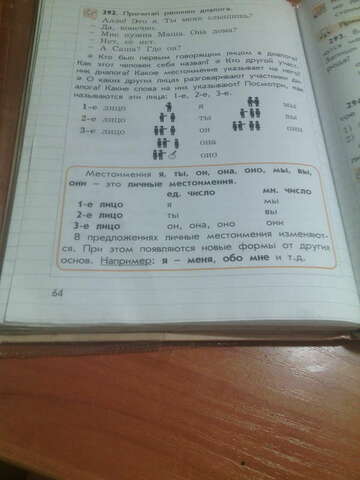 292. Прочитай реплики диалога.
– Алло! Это я. Ты меня слышишь?
– Да, конечно.
– Мне нужна Маша. Она дома?
– Нет, её нет.
– А Саша? Где он?
Кто был первым говорящим лицом в диалоге?
Как этот человек себя назвал? Кто другой участ-
ник диалога? Какое местоимение указывает на него?
О каких других лицах разговаривают участники ди-
алога? Какие слова на них указывают? Посмотри, как
называются эти лица: 1-е, 2-е, 3-е.
1-е лицо я мы
2-е лицо ты вы
3-е лицо он они
она
оно
Местоимения я, ты, он, она, оно, мы, вы,
они – это личные местоимения.
ед. число мн. число
1-е лицо я мы
2-е лицо ты вы
3-е лицо он, она, оно они
В предложениях личные местоимения изменяют-
ся. При этом появляются новые формы от других
основ. Например: я – меня, обо мне и т.д.
64